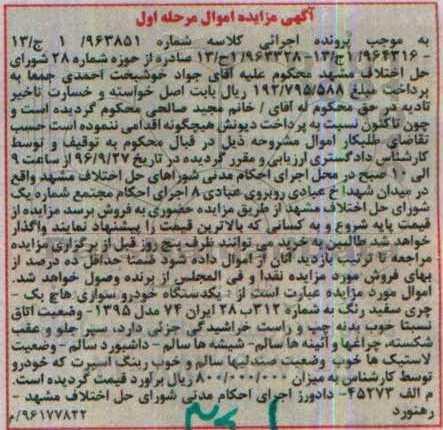 آگهی مزایده اموال مرحله اول
به موجب پرونده اجرائی کلاسه شماره ۹۶۳۸۵۱/ ۱ ج/۱۳
- ۹۶۴۳۱۶/ ۱ج/۱۳- ۹۶۳۳۲۸/ ۱ج/۱۳ صادره از حوزه شماره ۲۸ شورای
حل اختلاف مشهد محکوم علیه آقای جواد خوشبخت احمدی جمعا به
پرداخت مبلغ ۱۹۲/۷۹۵/۵۸۸ ریال بابت اصل خواسته و خسارت تاخیر
تادیه در حق محکوم له آقای / خانم مجید صالحی محکوم گردیده است و
چون تاکنون نسبت به پرداخت دیونش هیچگونه اقدامی ننموده است حسب
تقاضای طلبکار اموال مشروحه ذیل در قبال محکوم به توقیف و توسط
کارشناس دادگستری ارزیابی و مقرر گردیده در تاریخ ۹۶/۹/۲۷ از ساعت ۹
الی ۱۰ صبح در محل اجرای احکام مدنی شوراهای حل اختلاف مشهد واقع
در میدان شهدا خ عبادی روبروی عبادی ۸ اجرای احکام مجتمع شماره یک
شورای حل اختلاف مشهد از طریق مزایده حضوری به فروش برسد مزایده از
قیمت پایه شروع و به کسانی که بالاترین قیمت را پیشنهاد نمایند واگذار
خواهد شد طالبین به خرید می توانند ظرف پنج روز قبل از برگزاری مزایده
مراجعه تا ترتیب بازدید آنان از اموال داده شود ضمنا حداقل ده درصد از
بهای فروش مورد مزایده نقدا و فی المجلس از برنده وصول خواهد شد.
اموال مورد مزایده عبارت است از : یکدستگاه خودرو سواری هاچ بک -
چری سفید رنگ به شماره ۳۱۲ب ۲۸ ایران ۷۴ مدل ۱۳۹۵- وضعیت اتاق
نسبتا خوب بدنه چپ و راست خراشیدگی جزئی دارد، سپر جلو و عقب
شکسته، چراغها و آئینه ها سالم- شیشه ها سالم - داشبورد سالم - وضعیت
لاستیک ها خوب وضعیت صندلیها سالم و خوب رینگ اسپرت که خودرو
توسط کارشناس به میزان ۸۰۰/۰۰۰/۰۰۰ ریال برآورد قیمت گردیده است.
م الف ۴۵۲۷۳- دادورز اجرای احکام مدنی شورای حل اختلاف مشهد -
رهنورد
۹۶۱۷۷۸۲۲/م